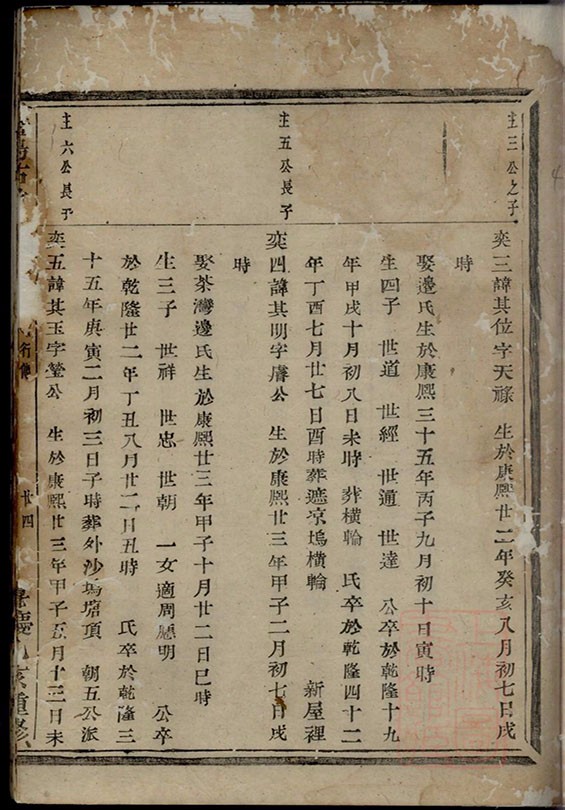 主三公之子
奕三諱其位字天祿 生於康熙廿二年癸亥八月初七日戌
時
娶邉氏生於康熙三十五年丙子九月初十日寅時
生四子 世道 世經 世通 世達 公卒於乾隆十九
年甲戌十月初八日未時 葬橫輪 氏卒於乾隆四十二
年丁酉七月廿七日酉時葬遮凉塢橫輪 新屋裡
主五公長子
奕四諱其明字膚公 生於康熙廿三年甲子二月初七日戌
時
娶茶灣邉氏生於康熙廿三年甲子十月廿二日巳時
生三子 世祥 世忠 世朝 一女適周明 公卒
於乾隆廿二年丁丑八月廿二日丑時 氏卒於乾隆三
十五年庚寅二月初三日子時葬外沙塢塘頂 朝五公派
主六公長子
奕五諱其玉字瑩公 生於康熙廿三年甲子五月十三日未
廿四
慶 重修